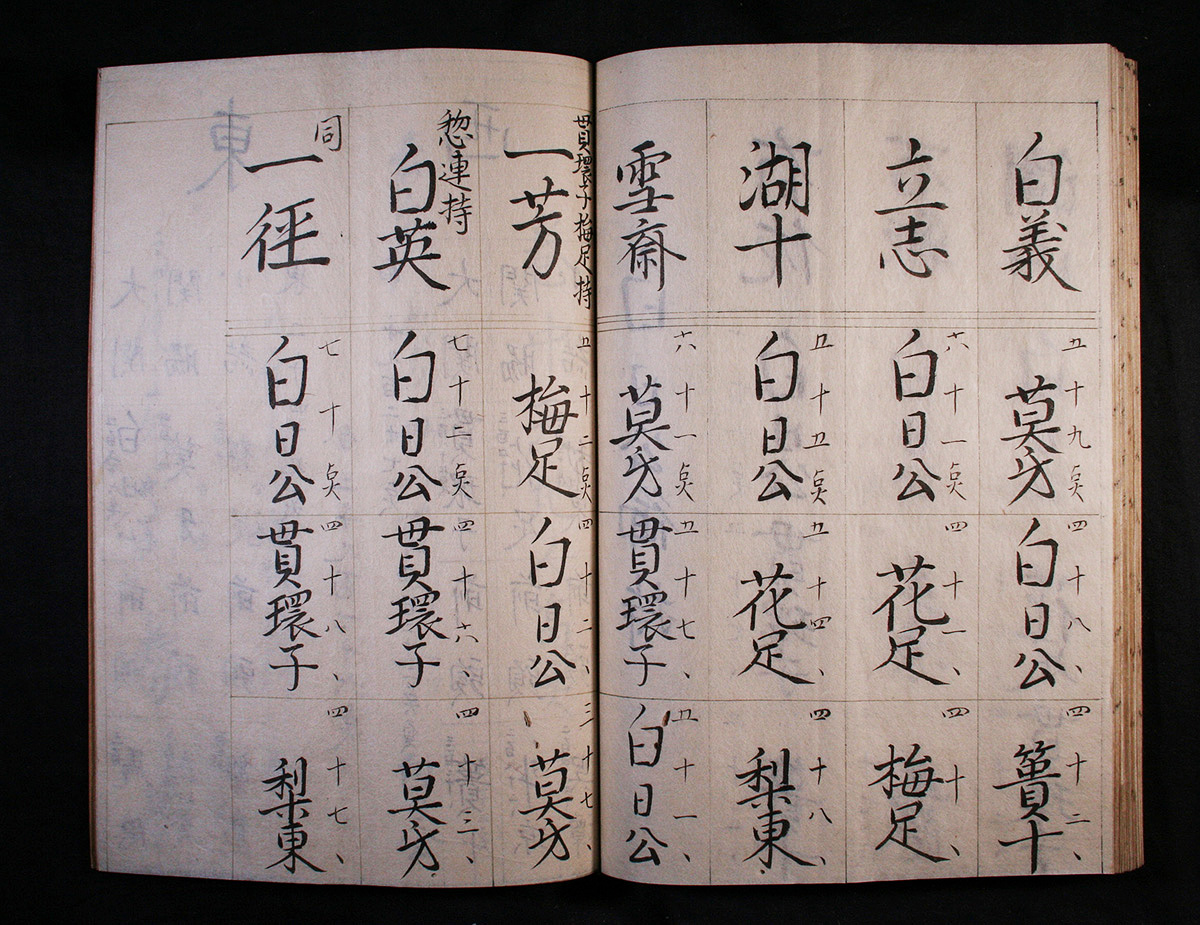 白義
五十九点
莫牙
四十八、
白日公
四十二、
簣十
立志
六十一点
白日公
四十一、
花足
四十、
梅足
湖十
五十五点
白日公
五十四、
花足
四十八、
梨東
雪斎
六十一点
莫牙
五十七、
貫環子
五十一、
白日公
貫環子梅足持
一芳
五十二点
梅足
四十二、
白日公
三十七、
莫牙
惣連持
白英
七十二点
白日公
四十六、
貫環子
四十三、
莫牙
同
一徑
七十点
白日公
四十八、
貫環子
四十七、
梨東